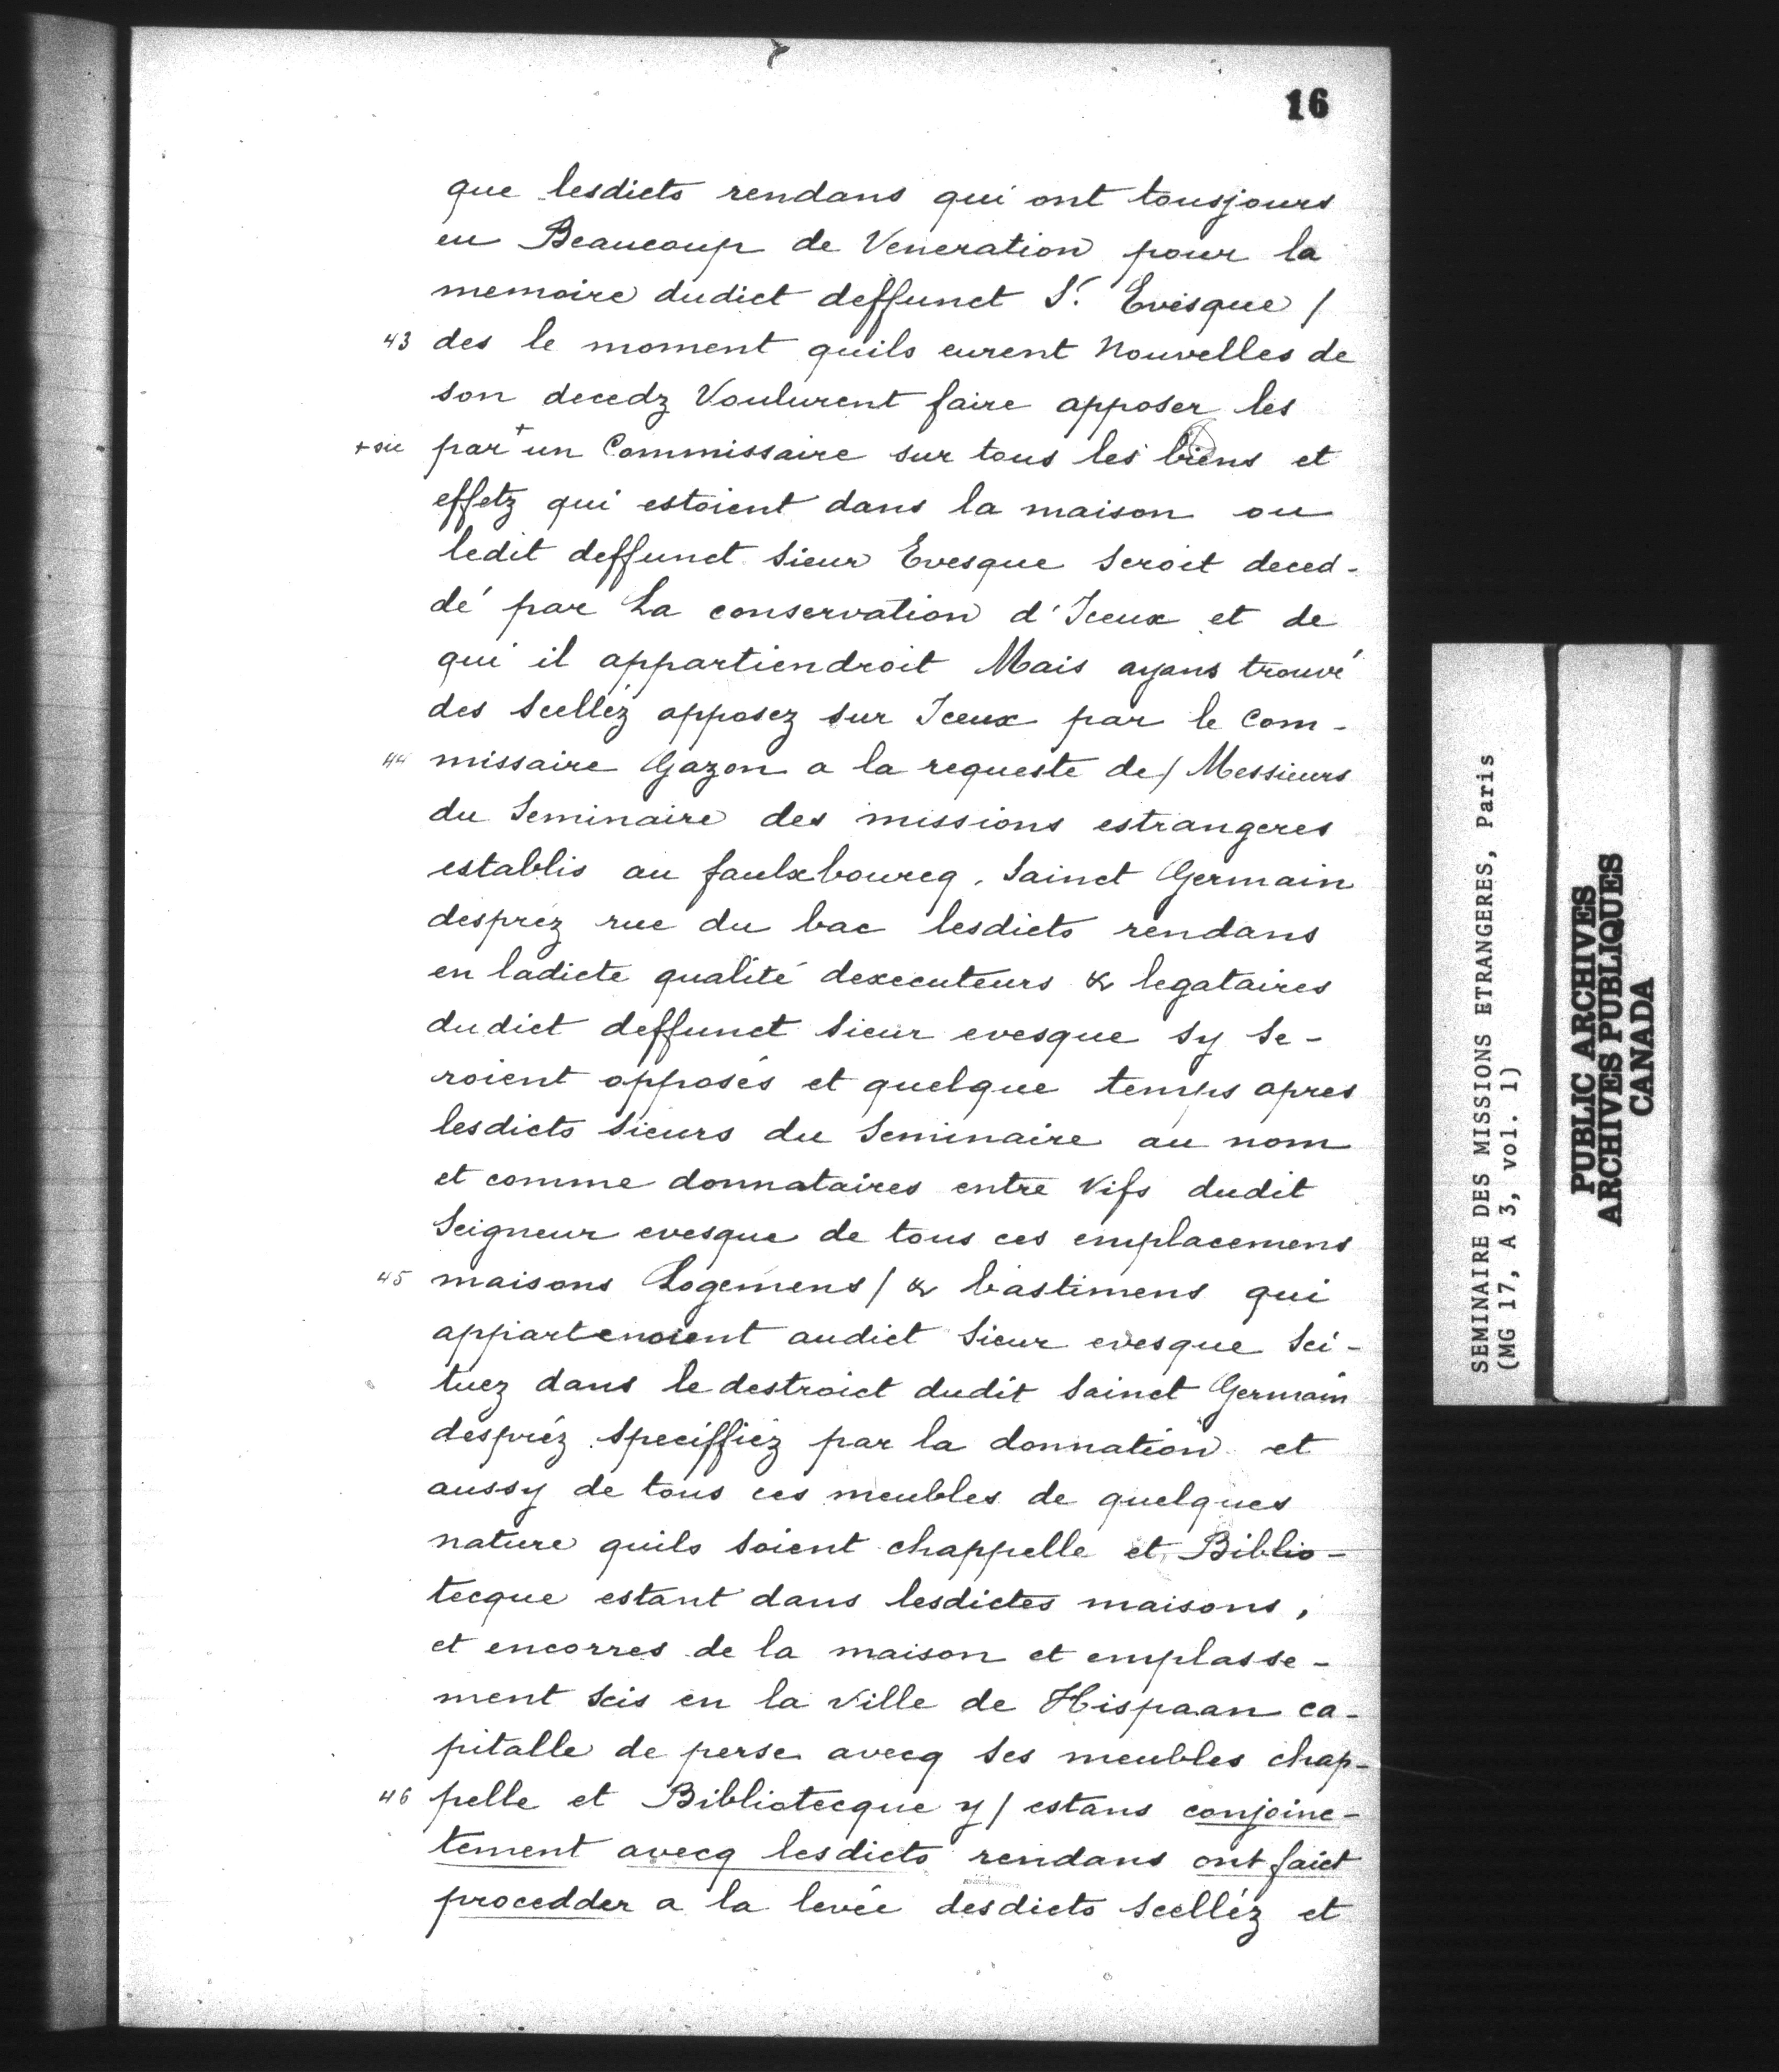 16
que lesdicts rendans qui ont tousjours
eu Beaucoup de Veneration pour la
memoire dudict deffunct Sr. Evesque /
43 des le moment quils eurent Nouvelles de
son decedz Voulurent faire apposer les
+ sic par + un Commissaire sur tous les biens et
effetz qui estoient dans la maison ou
ledit deffunct Sieur Evesque Seroit deced-
dé par La conservation d'Iceux et de
qui il appartiendroit Mais ayans trouvé
des Scelléz apposez sur Iceux par le Com-
44 missaire Gazon a la requeste de / Messieurs
du Seminaire des missions estrangeres
establis au faulxbourcg. Sainct Germain
despréz rue du bac lesdicts rendans
en ladicte qualité dexecuteurs & legataires
dudict deffunct Sieur evesque Sy Se-
roient opposés et quelque temps apres
lesdicts Sieurs du Seminaire au nom
et comme donnataires entre Vifs dudit
Seigneur evesque de tous ces emplacemens
45 maisons Logemens / & bastimens qui
appartenoient audict Sieur evesque Sci-
tuez dans le destroict dudit Sainct Germain
despréz Speciffiéz par la donnation et
aussy de tous ces meubles de quelques
nature quils Soient chappelle et Biblio-
tecque estant dans lesdictes maisons,
et encorres de la maison et emplasse-
ment Scis en la Ville de Hispaan ca-
pitalle de perse avecq Ses meubles chap-
46 pelle et Bibliotecque y / estans conjoinc-
tement avecq lesdicts rendans ont faict
procedder a la levée desdicts Scelléz et
SEMINAIRE DES MISSIONS ETRANGERES, Paris
(MG 17, A 3, vol. 1)
PUBLIC ARCHIVES
ARCHIVES PUBLIQUES
CANADA